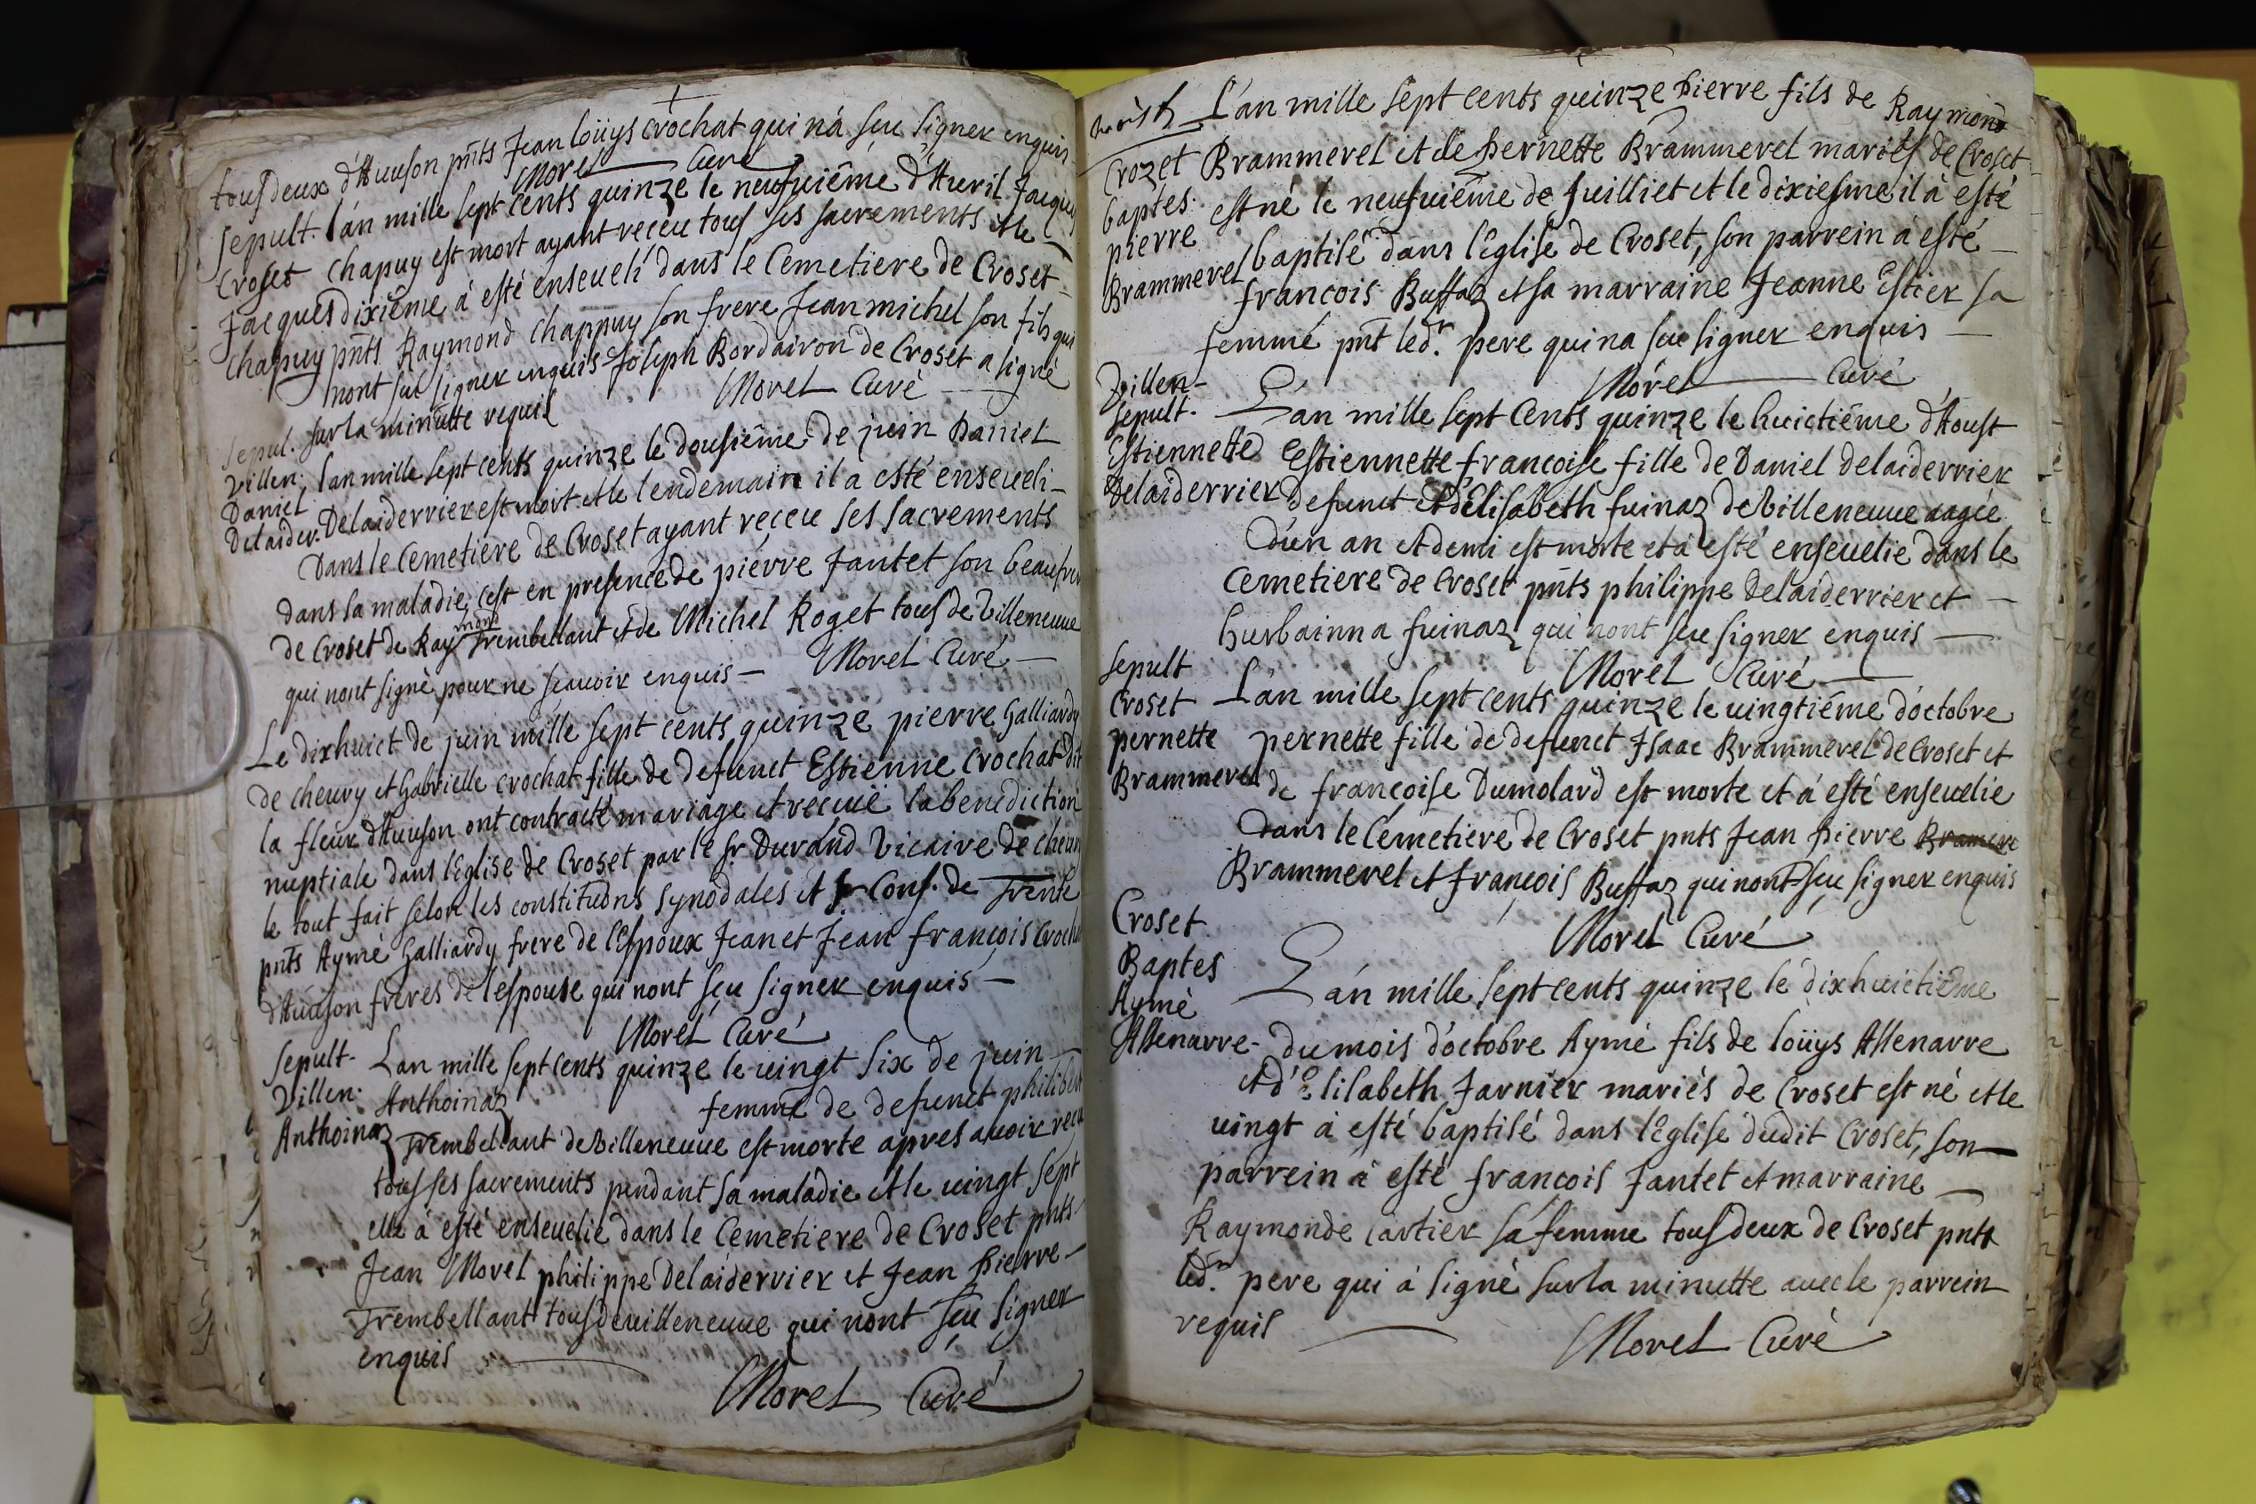 tous deux d'Auuson pnts Jean loüys Crochat qui n'a sçu signer enquis
Morel Curé
sepult. l'an mille sept cents quinze le neufuiême d'Auril Jacques
Croset Chapuy est mort ayant receu tous ses sacrements et le
Jacques dixiême à esté enseueli dans le Cemetiere de Croset
Chapuy pnts Raymond Chappuy son frere Jean michel son fils qui
n'ont sçu signer enquis Joseph Bordairon de Croset a signé
sur la minutte requis Morel Curé
sepul.
villen. l'an mille sept cents quinze le dousiême de juin Daniel
Daniel Delaiderrier est mort et le lendemain il a esté enseueli
Delaider. Dans le Cemetiere de Croset ayant receu ses sacrements
dans sa maladie, c'est en presence de pierre Jantet son beaufrere
de Croset de Raymond Trembellant et de Michel Roget tous de Villeneuue
qui nont signé pour ne sçauoir enquis Morel Curé
Le dixhuict de juin mille sept cents quinze pierre Galliardy
de cheury et Gabrielle Crochat fille de defunct Estienne Crochat dit
la fleur d'Auuson ont contracté mariage et receuë la benediction
nuptiale dans l'Eglise de Croset par le sr Durand Vicaire de cheury
le tout fait selon les constitutions synodales et Conf. de Trente
pnts Aymé Galliardy frere de l'Espoux Jean et Jean françois Crochat
d'Auuson freres de l'espouse qui nont sçu signer enquis
Morel Curé
sepult. L'an mille sept cents quinze le uingt six de juin
Villen. Anthoinaz femme de defunct philibert
Anthoinaz Trembellant de Villeneuue est morte apres auoir receu
tous ses sacrements pendant sa maladie et le uingt sept
elle à esté enseuelie dans le Cemetiere de Croset pnts
Jean Morel philippe Delaiderrier et Jean Pierre
Trembellant tous de uilleneuue qui nont sçu signer
enquis
Morel Curé
L'an mille sept cents quinze Pierre fils de Raymond
Crozet Brammerel et de Pernette Brammerel mariés de Croset
baptes. est né le neufuiême de Juilliet et le dixiesme il à esté
pierre baptisé dans l'Eglise de Croset, son parrein à esté
Brammerel françois Buffaz et sa marraine Jeanne Estier sa
femme pnt led.r pere qui na sçu signer enquis
Morel Curé
Villen-
sepult. L'an mille sept Cents quinze le huictiême d'Aoust
Estiennette Estiennette françoise fille de Daniel Delaiderrier
Delaiderrier defunct et d'Elisabeth fuinaz de Villeneuue aagée
d'un an et demi est morte et à esté enseuelie dans le
Cemetiere de Croset pnts philippe Delaiderrier et
hurbainna fuinaz qui nont sçu signer enquis
Morel Curé
sepult
Croset L'an mille sept cents quinze le uingtiême d'octobre
pernette pernette fille de defunct Isaac Brammerel de Croset et
Brammerel de françoise Dumolard est morte et à esté enseuelie
dans le Cemetiere de Croset pnts Jean Pierre Bramere
Brammerel et françois Buffaz qui nont sçu signer enquis
Morel Curé
Croset
Baptes L'an mille sept cents quinze le dixhuictiême
Aymé
Allenarre- du mois d'octobre Aymé fils de loüys Allenarre
et d'Elisabeth Jarnier mariés de Croset est né et le
uingt à esté baptisé dans l'Eglise dudit Croset, son
parrein à esté françois Jantet et marraine
Raymonde Cartier sa femme tous deux de Croset pnts
led.r pere qui à signé sur la minutte auec le parrein
requis
Morel Curé